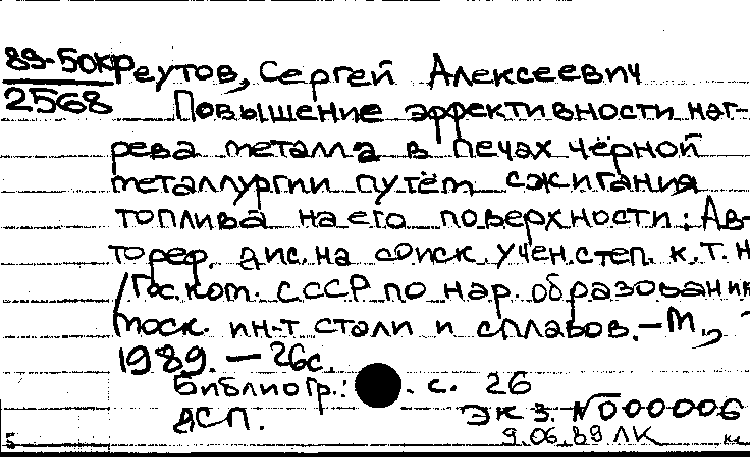 89-50КР
2568
Реутов, Сергей Алексеевич
Повышение эффективности наг-
рева металла в печах чёрной
металлургии путём сжигания
топлива на его поверхности: Ав-
тореф. дис. на соиск. учен. степ. к.т.н
/Гос. ком. СССР по нар. образовани
Моск. ин-т стали и сплавов. – М.,
1989. – 26с.
Библиогр.: . с. 26
ДСП.
Экз. №000006
9.06.89 ЛК